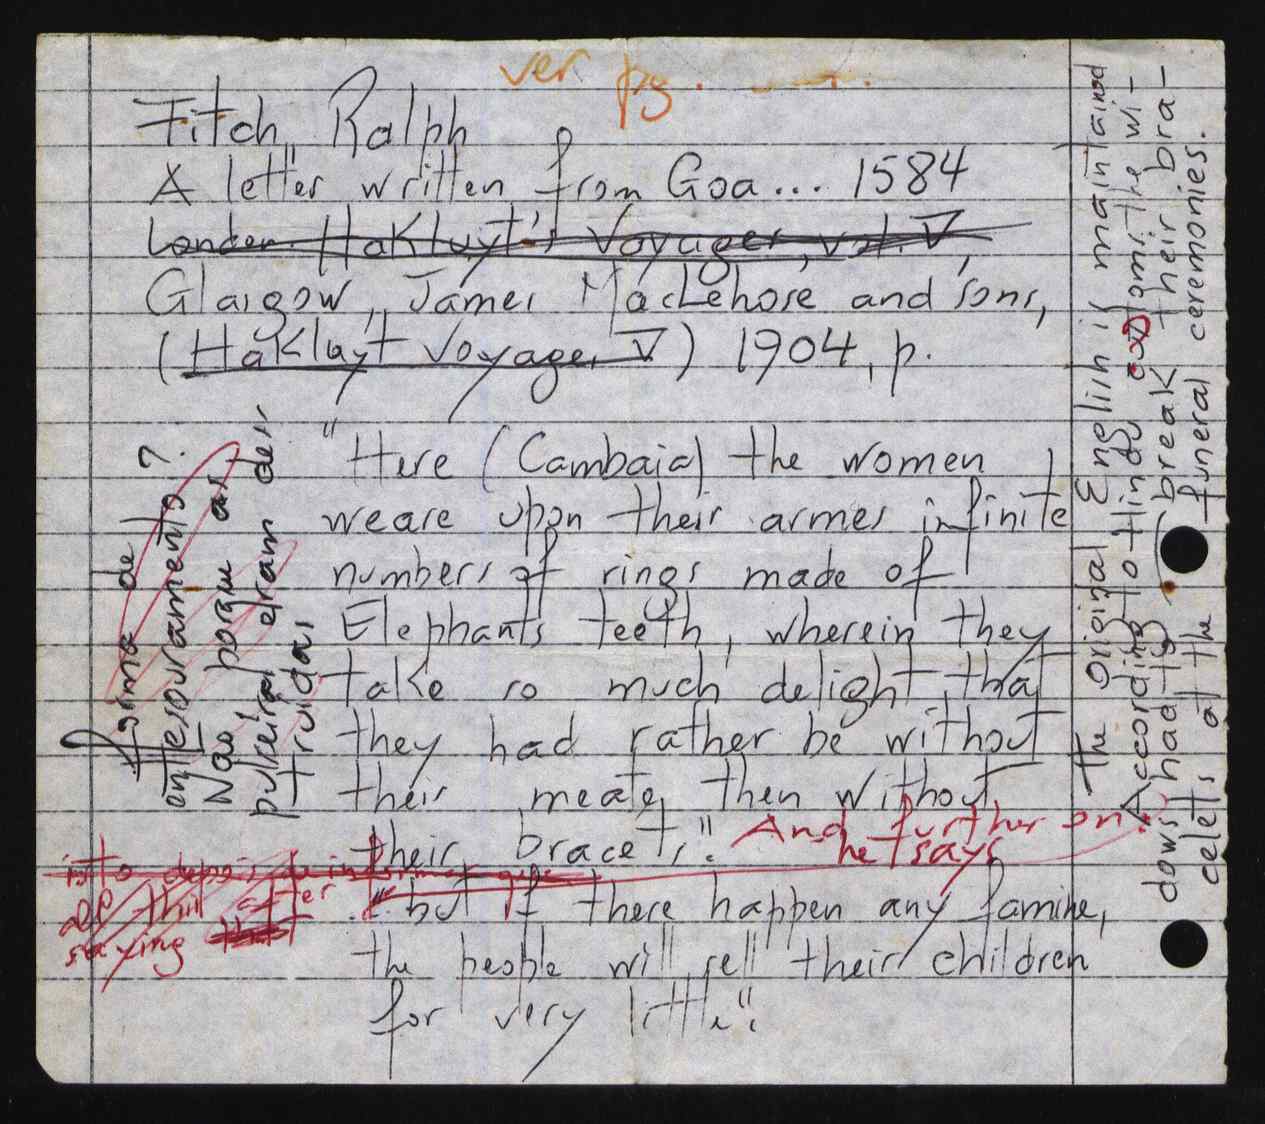 ver pg.
Fitch, Ralph
A letter written from Goa... 1584
London Hakluyt's Voyages, vol. V,
Glasgow, James MacLehose and sons,
(Hakluyt Voyages V) 1904, p.
"Here (Cambaia) the women
weare upon their armes infinite
numbers of rings made of
Elephants teeth, wherein they
take so much delight, that
they had rather be without
their meate, then without
their bracets". And further on
he says
"but if there happen any famine,
the people will sell their children
for very little".
forma de
entesouramento?
Não porque as
pulseiras eram des-
truidas
into depois
all this after
saying that
The original English is maintained
According to Hindu customs the wi-
dows had to break their bra-
celets at the funeral ceremonies.